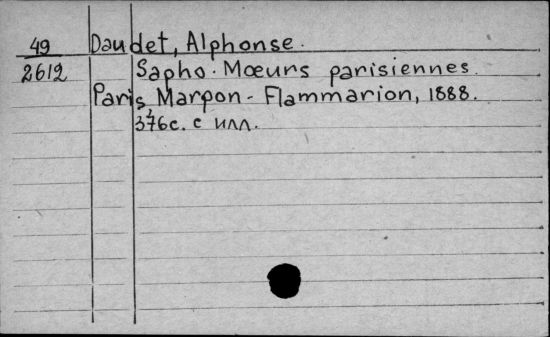 49 Daudet, Alphonse.
2612 Sapho. Mœurs parisiennes.
Paris, Marpon-Flammarion, 1888.
376с. с илл.